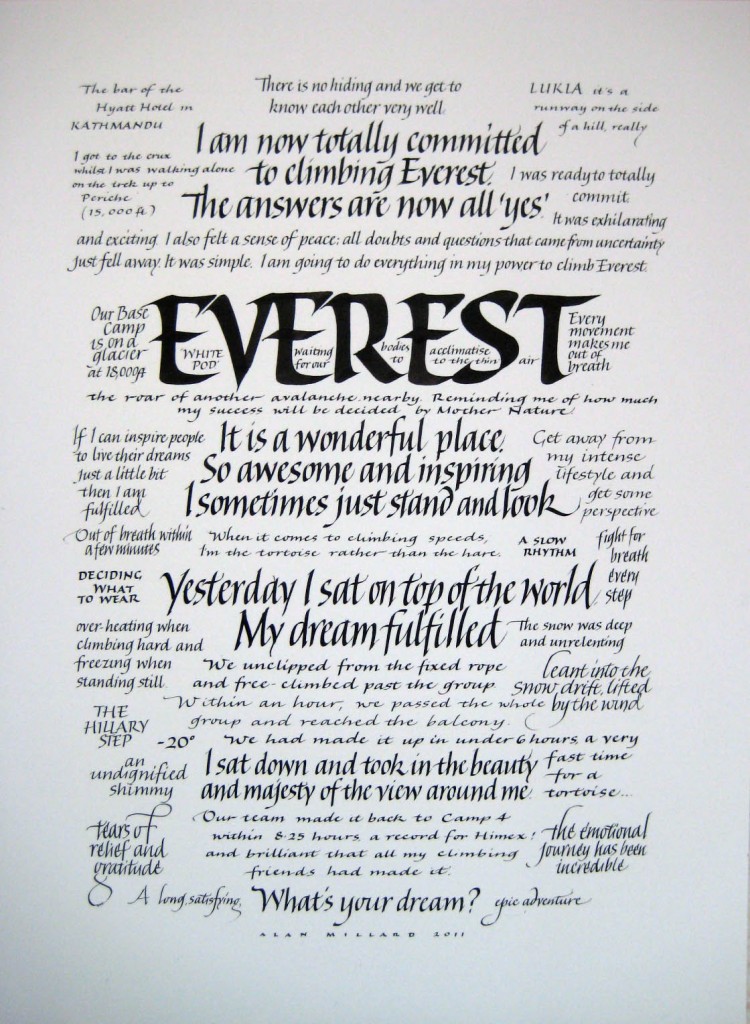 The bar of the
Hyatt Hotel in
KATHMANDU
There is no hiding and we get to
know each other very well
LUKLA it's a
runway on the side
of a hill, really
I am now totally committed
to climbing Everest.
The answers are now all 'yes'
I got to the crux
whilst I was walking alone
on the trek up to
Periche
(15,000 ft.)
I was ready to totally
commit.
It was exhilarating
and exciting. I also felt a sense of peace: all doubts and questions that came from uncertainty
just fell away. It was simple. I am going to do everything in my power to climb Everest.
Our Base
Camp
is on a
glacier
at 18,000ft
EVEREST
'WHITE
POD'
waiting
for our
bodies
to
acclimatise
to the thin
air
Every
movement
makes me
out of
breath
the roar of another avalanche nearby. Reminding me of how much
my success will be decided by Mother Nature
If I can inspire people
to live their dreams
just a little bit
then I am
fulfilled
It is a wonderful place.
So awesome and inspiring
I sometimes just stand and look
Get away from
my intense
lifestyle and
get some
perspective
Out of breath within
a few minutes
When it comes to climbing speeds,
I'm the tortoise rather than the hare.
A SLOW
RHYTHM
fight for
breath
every
step
DECIDING
WHAT
TO WEAR
Yesterday I sat on top of the world
My dream fulfilled
over-heating when
climbing hard and
freezing when
standing still
The snow was deep
and unrelenting
We unclipped from the fixed rope
and free-climbed past the group.
Within an hour, we passed the whole
group and reached the balcony.
leant into the
snow drift, lifted
by the wind
THE
HILLARY
STEP
-20°
We had made it up in under 6 hours, a very
fast time
for a
tortoise...
an
undignified
shimmy
I sat down and took in the beauty
and majesty of the view around me
Our team made it back to Camp 4
within 8.25 hours, a record for Himex!
and brilliant that all my climbing
friends had made it.
tears of
relief and
gratitude
the emotional
journey has been
incredible
A long, satisfying,
What's your dream?
epic adventure
ALAN MILLARD 2011